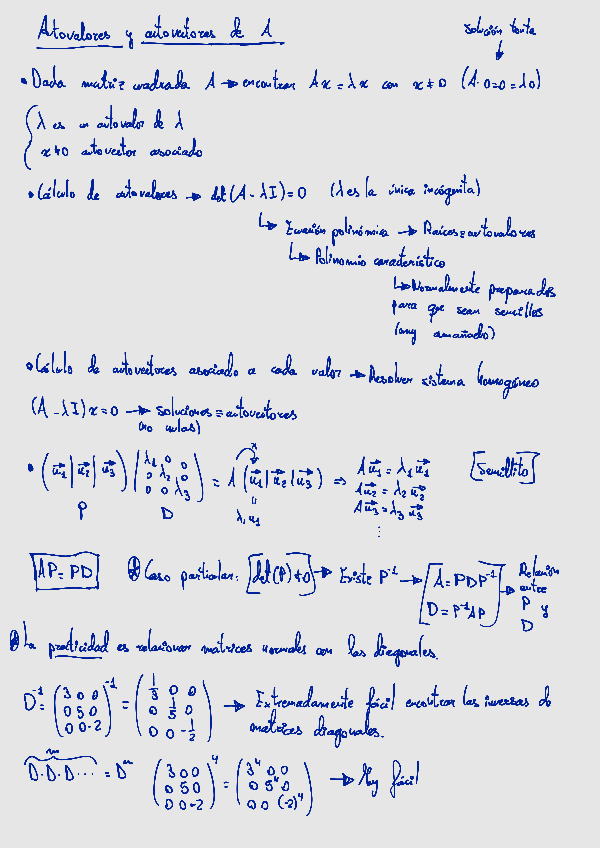 Autovalores y autovectores de A
solución tonta
↓
• Dada matriz cuadrada A → encontrar Ax = λx con x ≠ 0 (A·0=0=λ0)
{ λ es un autovalor de λ
x≠0 autovector asociado
• Cálculo de autovalores → det(A - λI) = 0 (λ es la única incógnita)
↳ Ecuación polinómica → Raíces = autovalores
↳ Polinomio característico
↳ Normalmente preparados
para que sean sencillos
(muy amañado)
• Cálculo de autovectores asociado a cada valor → Resolver sistema homogéneo
(A - λI)x = 0 → soluciones = autovectores
(no nulas)
• (u₁ | u₂ | u₃) (λ₁ 0 0 / 0 λ₂ 0 / 0 0 λ₃) = A (u₁ | u₂ | u₃) ⇒ Au₁ = λ₁u₁ [Sencillito]
Au₂ = λ₂u₂
Au₃ = λ₃u₃
⋮
P D
"
λ₁u₁
AP = PD ⊛ Caso particular: [det(P) ≠ 0] → Existe P⁻¹ → [A = PDP⁻¹
D = P⁻¹AP] → Relación
entre
P y
D
⊛ La practicidad es relacionar matrices normales con las diagonales.
D⁻¹ = (3 0 0 / 0 5 0 / 0 0 -2)⁻¹ = (1/3 0 0 / 0 1/5 0 / 0 0 -1/2) → Extremadamente fácil encontrar las inversas de
matrices diagonales.
n
D·D·D··· = Dⁿ (3 0 0 / 0 5 0 / 0 0 -2)⁴ = (3⁴ 0 0 / 0 5⁴ 0 / 0 0 (-2)⁴) → Muy fácil